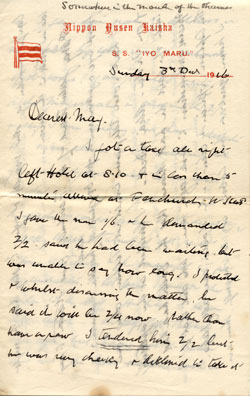 Somewhere in the mouth of the Thames
Nippon Yusen Kaisha
S.S. "IYO MARU."
Sunday 3rd Dec 1916
Dearest May.
I got a taxi all right
left Hotel at 8.10 & in less than 5
minutes arrived at Fenchurch St Stn
I gave the man 1/6 & he demanded
2/2 said he had been waiting but
was unable to say how long. I protested
& whilst discussing the matter he
said it will be 2/4 now rather than
have a row I tendered him 2/2 but
he was very cheeky & declined to take it